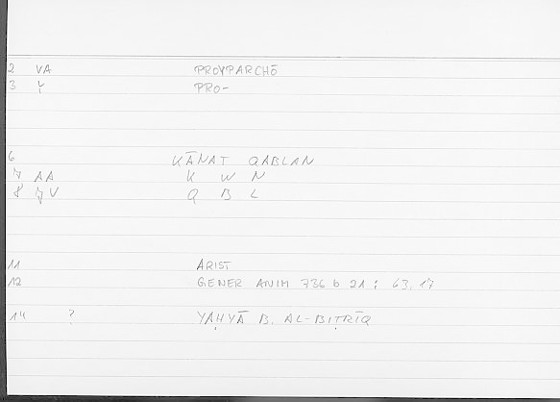 2 VA PROYPARCHŌ
3 Y PRO-
6 KĀNAT QABLAN
7 AA K W N
8 V Q B L
11 ARIST
12 GENER ANIM 736 b 21 : 63,17
14 ? YAḤYĀ B. AL-BIṬRĪQ